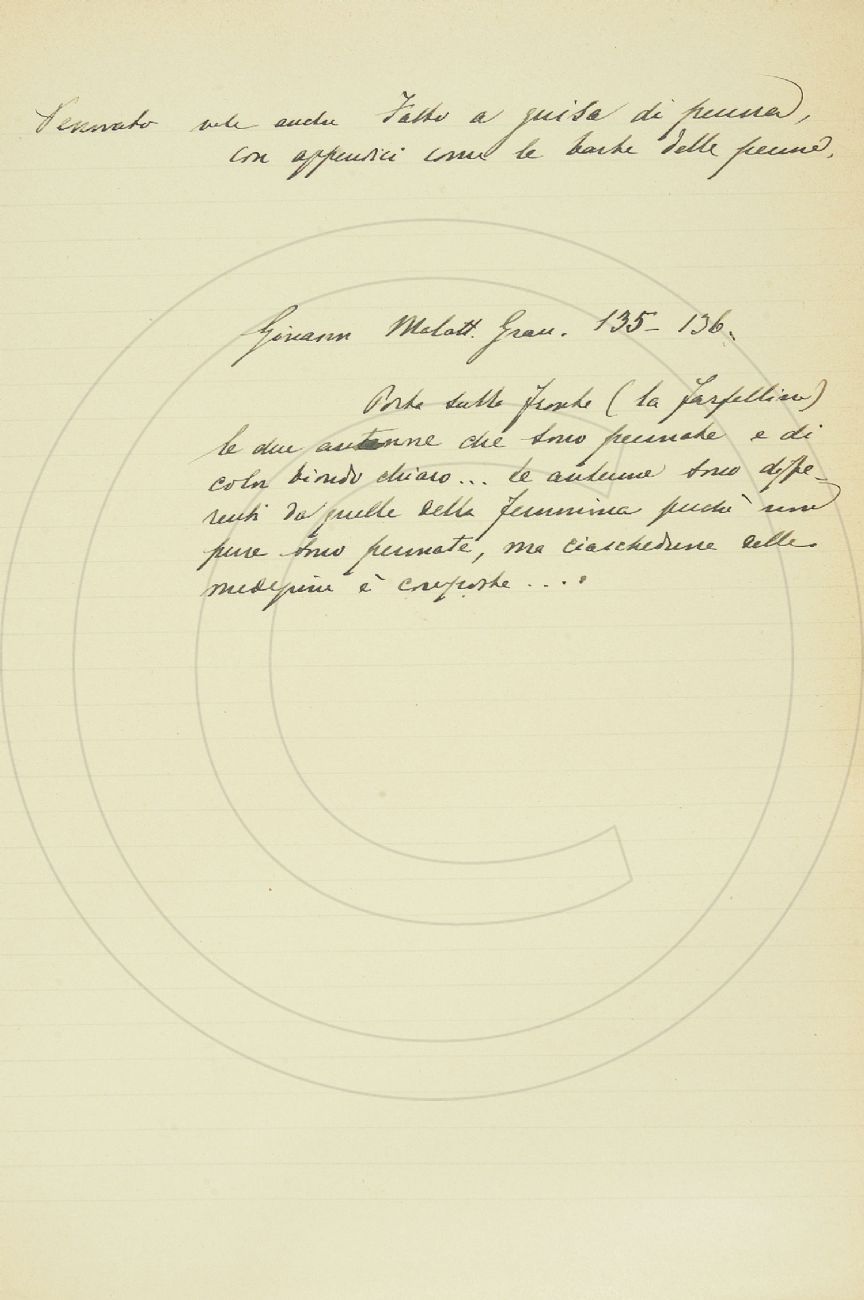 Pennato vale anche Fatto a guisa di penna,
con appendici come le barbe delle penne.
Giovann Malatt. Gran. 135-136.
Porta sulla fronte (la farfallina)
le due antenne che sono pennate e di
color biondo chiaro... le antenne sono diffe-
renti da quelle della femmina perchè non
pure sono pennate, ma ciascheduna delle
medesime è composta ....